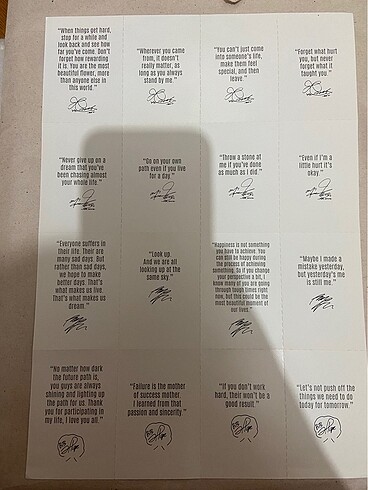 "When things get hard,
stop for a while and
look back and see how
far you've come. Don't
forget how rewarding
it is. You are the most
beautiful flower, more
than anyone else in
this world."
"Wherever you came
from, it doesn't
really matter, as
long as you always
stand by me."
"You can't just come
into someone's life,
make them feel
special, and then
leave."
"Forget what hurt
you, but never
forget what it
taught you."
"Never give up on a
dream that you've
been chasing almost
your whole life."
"Go on your own
path even if you live
for a day."
"Throw a stone at
me if you've done
as much as I did."
"Even if I'm a
little hurt it's
okay."
"Everyone suffers in
their life. Their are
many sad days. But
rather than sad days,
we hope to make
better days. That's
what makes us live.
That's what makes us
dream."
"Look up.
And we are all
looking up at the
same sky."
"Happiness is not something
you have to achieve. You
can still be happy during
the process of achieving
something. So if you change
your perspective a bit, I
know many of you are going
through tough times right
now, but this could be the
most beautiful moment of
our lives."
"Maybe I made a
mistake yesterday,
but yesterday's me
is still me."
"No matter how dark
the future path is,
you guys are always
shining and lighting up
the path for us. Thank
you for participating in
my life, I love you all."
"Failure is the mother
of success mother.
I learned from that
passion and sincerity."
"If you don't work
hard, their won't be a
good result."
"Let's not push off the
things we need to do
today for tomorrow."